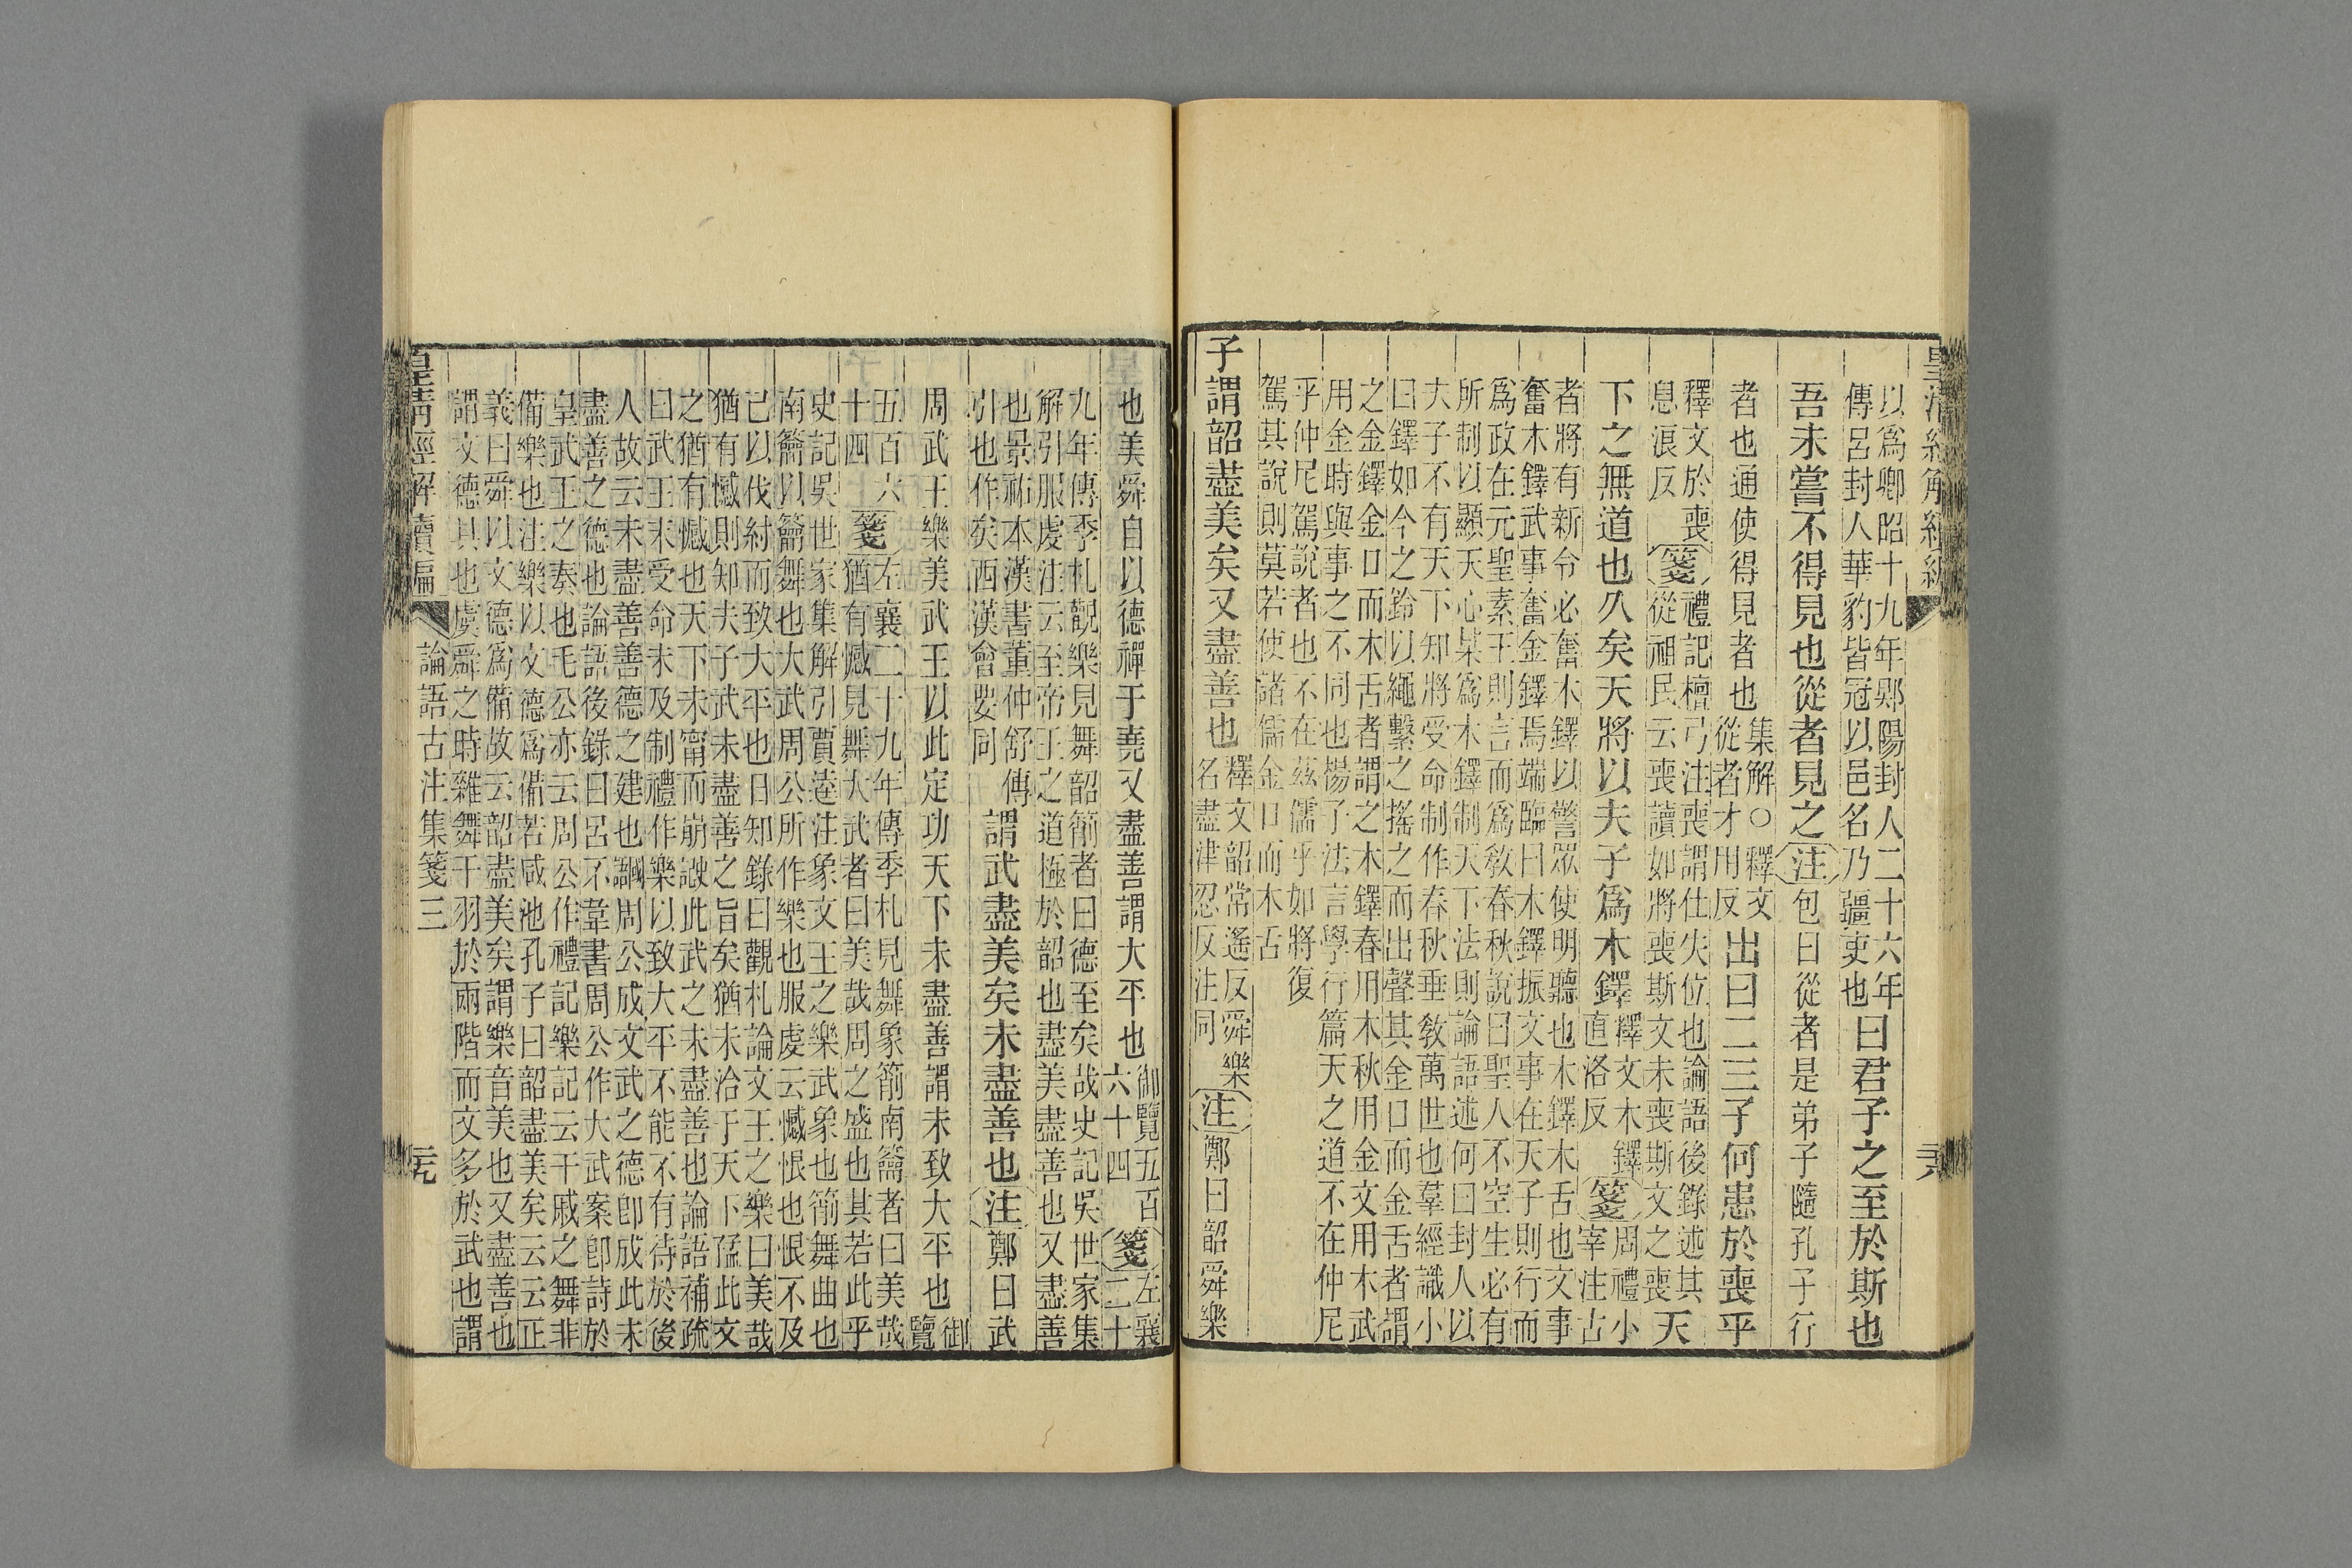 皇清經解續編
以爲卿昭十九年郹陽封人二十六年
傳呂封人華豹皆冠以邑名乃疆吏也
曰君子之至於斯也
吾未嘗不得見也從者見之注包曰從者是弟子隨孔子行
者也通使得見者也
集解○釋文
從者才用反
出曰二三子何患於喪乎
釋文於喪
息浪反
箋
禮記檀弓注喪謂仕失位也論語後錄述其
從祖民云喪讀如將喪斯文未喪斯文之喪
天
下之無道也久矣天將以夫子爲木鐸
釋文木鐸
直洛反
箋
周禮小
宰注古
者將有新令必奮木鐸以警眾使明聽也木鐸木舌也文事
奮木鐸武事奮金鐸焉端臨曰木鐸振文事在天子則行而
爲政在元聖素王則言而爲敎春秋說曰聖人不空生必有
所制以顯天心某爲木鐸制天下法則論語述何曰封人以
夫子不有天下知將受命制作春秋垂敎萬世也羣經識小
曰鐸如今之鈴以繩繫之搖之而出聲其金口而金舌者謂
之金鐸金口而木舌者謂之木鐸春用木秋用金文用木武
用金時與事之不同也楊子法言學行篇天之道不在仲尼
乎仲尼駕說者也不在茲儒乎如將復
駕其說則莫若使諸儒金口而木舌
子謂韶盡美矣又盡善也
釋文韶常遙反舜樂
名盡津忍反注同
注鄭曰韶舜樂
也美舜自以德禪于堯又盡善謂大平也
御覽五百
六十四
箋
左襄
二十
九年傳季札觀樂見舞韶箾者曰德至矣哉史記吳世家集
解引服虔注云至帝王之道極於韶也盡美盡善也又盡善
也景祐本漢書董仲舒傳
引也作矣西漢會要同
謂武盡美矣未盡善也注鄭曰武
周武王樂美武王以此定功天下未盡善謂未致大平也
御
覽
五百六
十四
箋
左襄二十九年傳季札見舞象箾南籥者曰美哉
猶有憾見舞大武者曰美哉周之盛也其若此乎
史記吳世家集解引賈逵注象文王之樂武象也箾舞曲也
南籥以籥舞也大武周公所作樂也服虔云憾恨也恨不及
己以伐紂而致大平也日知錄曰觀札論文王之樂曰美哉
猶有憾則知夫子武未盡善之旨矣猶未洽于天下孟此文
之猶有憾也天下未甯而崩詖此武之未盡善也論語補疏
曰武王末受命未及制禮作樂以致大平不能不有待於後
人故云未盡善善德之建也周公成文武之德卽成此未
盡善之德也論語後錄曰呂不韋書周公作大武案卽詩於
皇武王之奏也毛公亦云周公作禮記樂記云干戚之舞非
備樂也注樂以文德爲備若咸池孔子曰韶盡美矣云云正
義曰舜以文德爲備故云韶盡美矣謂樂音美也又盡善也
謂文德具也虞舜之時雜舞干羽於兩階而文多於武也謂
皇清經解續編
論語古注集箋三